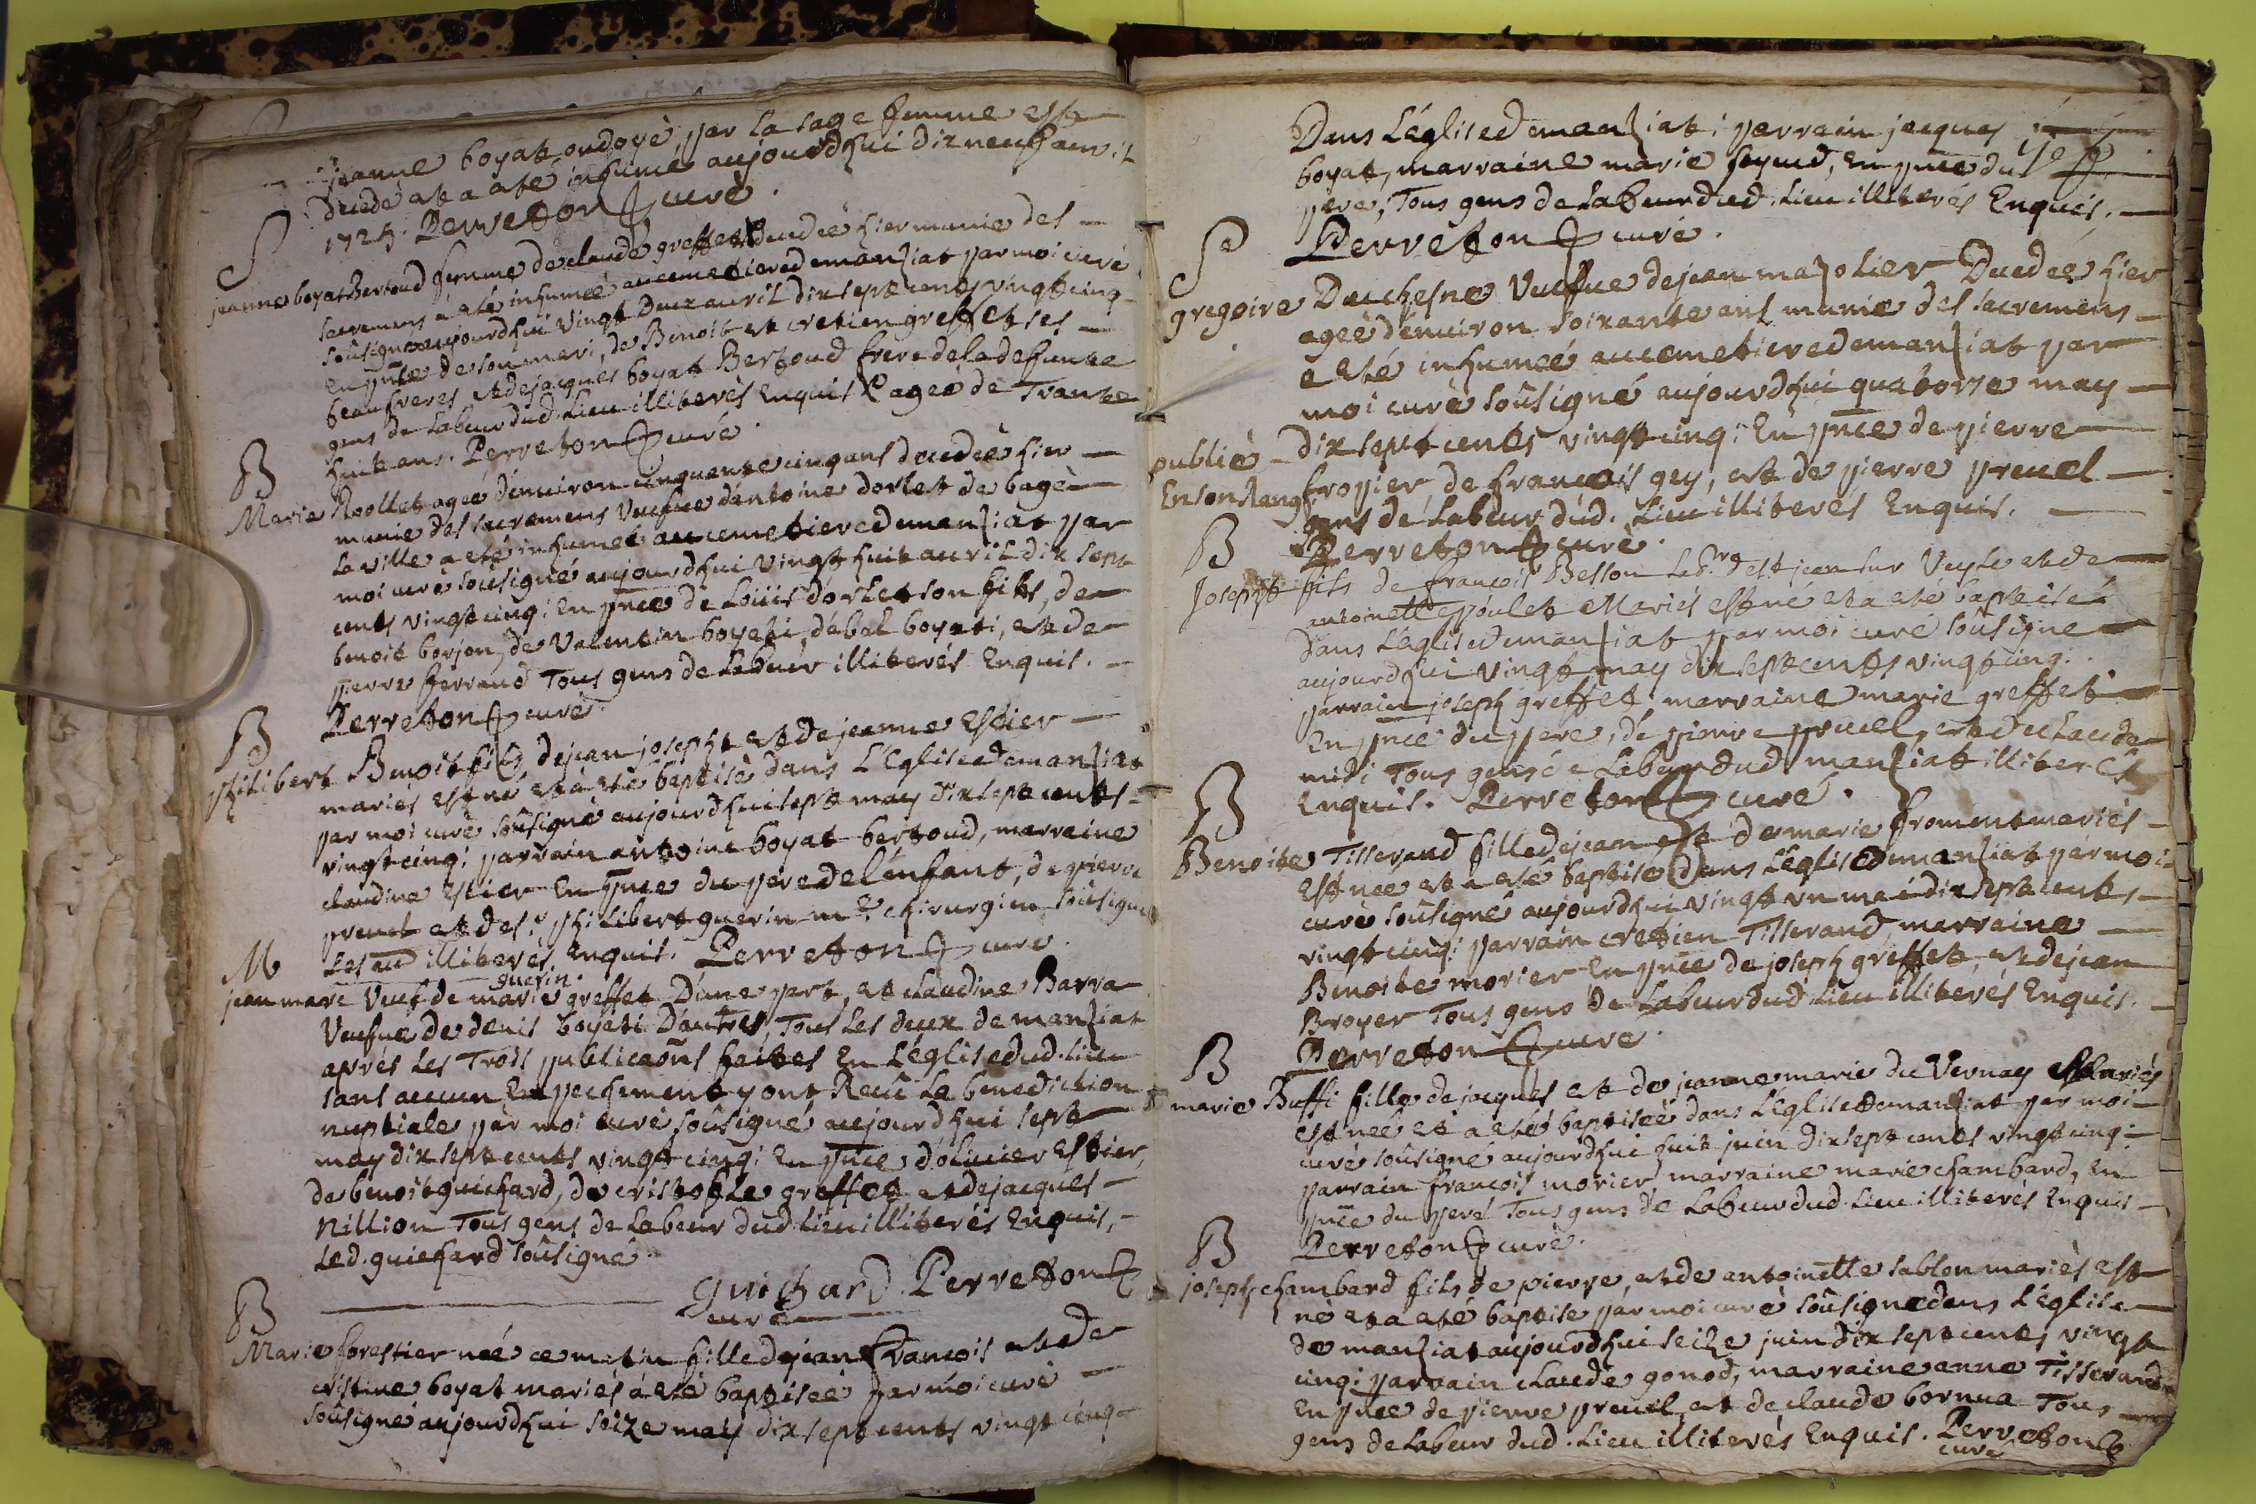 jeanne boyat ondoyé par la sage femme est
decedé et a eté inhumé aujourdhui dix neuf avril
1725. Perreton curé.
S
jeanne boyat Bertoud femme de claude greffet decedeé hier munie des
sacremens a eté inhumeé au cemetiere de manziat par moi curé
soûsigné aujourdhui vingt deux avril dix sept cents vingt cinq
en pnce de son mari, de Benoit et cretien greffet ses
beaufreres et de jacques boyat Bertoud frere de la defunte
gens de labeur dud. lieu illiterés enquis ageé de Trante
huit ans. Perreton curé.
B
Marie Roollet ageé denviron cinquante cinq ans decedeé hier
munie des sacremens Veufue dantoine dorlet de bagé
la ville a eté inhumeé au cemetiere de manziat par
moi curé soûsigné aujourdhui vingt huit avril dix sept
cents vingt cinq: En pnce de Loüis dorlet son fils, de
benoit borjon, de Valentin boyeti, debal boyati, et de
pierre ferrand Tous gens de labeur illiterés Enquis.
Perreton curé.
B
philibert Benoit fils de jean joseph et de jeanne Estier
mariés est né et a eté baptisé dans L'Eglise de manziat
par moi curé soûsigné aujourdhui sept may dix sept cents
vingt cinq: parrain antoine boyat bertoud, marraine
claudine Estier En pnce du pere de lenfant, de pierre
preuel et de sr. philibert guerin me. chirurgien soûsigné
les aud illiterés, enquis. Perreton curé.
guerin.
M
jean marc Veuf de marie greffet Dune part, et claudine Barra
Veufue de denis boyeti Dautres, Tous les deux de manziat
aprés les Trois publicaõns faites En L'église dud. lieu
sans aucun Empechement y ont Receu la benediction
nuptiale par moi curé soûsigné aujourdhui sept
may dix sept cents vingt cinq: En pnce d'oliuier Estier,
de benoit guichard, de cristophle greffet et de jacques
Nillion Tous gens de labeur dud. lieu illiterés Enquis,
led. guichard soûsigné.
guichard. Perreton
curé
B
Marie forestier neé ce matin fille de jean francois et de
cristine boyat mariés a eté baptiseé par moi curé
soûsigné aujourdhui seize may dix sept cents vingt cinq
Dans L'église de manziat: parrain jacques
boyat, marraine marie seyud, En pnce du
pere, Tous gens de labeur dud. lieu illiterés Enquis.
Perreton curé.
Se
gregoire Duchesne Veufue de jean mazolier Decedeé hier
ageé denuiron soixante ans munie des sacremens
a eté inhumeé au cemetiere de manziat par
moi curé soûsigné aujourdhui quatorze may
publié dix sept cents vingt cinq: En pnce de pierre
En son Rang fropier de francois gey, et de pierre preuel
gens de labeur dud. lieu illiterés Enquis.
Perreton curé.
B
Joseph fils de francois Besson labr. dest jean sur Veyle et de
antoinette poulet Mariés est né et a eté baptisé
dans L'église de manziat par moi curé soûsigné
aujourdhui vingt may dix sept cents vingt cinq:
parrain joseph greffet, marraine marie greffet
En pnce du pere, de pierre preuel, et de claude
midi Tous gens de labeur dud. manziat illiterés
Enquis. Perreton curé.
B
Benoite Tisserand fille de jean et de marie froment mariés
est neé et a eté baptiseé dans L'église de manziat par moi
curé soûsigné aujourdhui vingt vn mai dix sept cents
vingt cinq: parrain cretien Tisserand marraine
Benoite morier En pnce de joseph greffet, et de jean
Broyer Tous gens de labeur dud. lieu illiterés Enquis.
Perreton curé.
B
marie Buffi fille de jacques et de jeanne marie du Vernay mariés
est neé et a eté baptiseé dans L'église de manziat par moi
curé soûsigné aujourdhui huit juin dix sept cents vingt cinq:
parrain francois morier marraine marie chambard, En
pnce du pere Tous gens de Labeur dud. lieu illiterés Enquis
Perreton curé.
B
joseph chambard fils de pierre, et de antoinette sablon mariés est
né et a eté baptisé par moi curé soûsigné dans L'église
de manziat aujourdhui seize juin dix sept cents vingt
cinq: parrain claude gonod, marraine anne Tisserand
En pnce de pierre preuel, et de claude bornua Tous
gens de Labeur dud. lieu illiterés Enquis. Perreton
curé